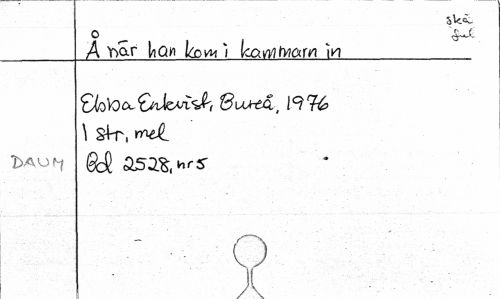 skä
ful
Å när han kom i kammarn in
Ebba Enkvist, Bureå, 1976
1 str, mel
DAUM Bd 2528, nr 5